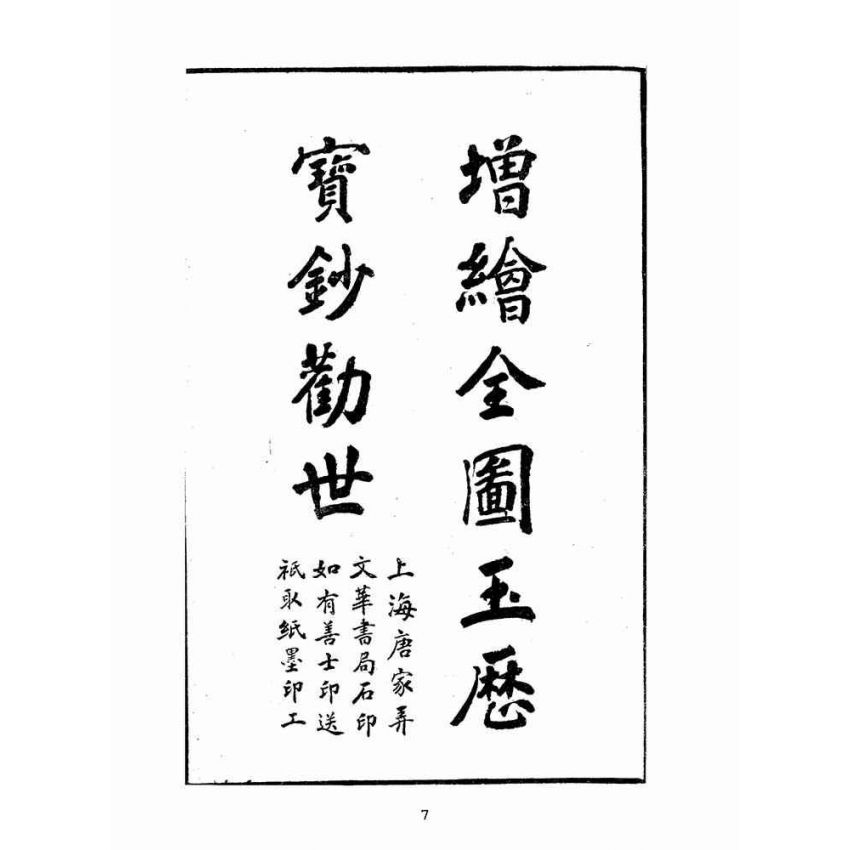 增繪全圖玉歷
寶鈔勸世
上海唐家弄
文華書局石印
如有善士印送
祇取紙墨印工
7